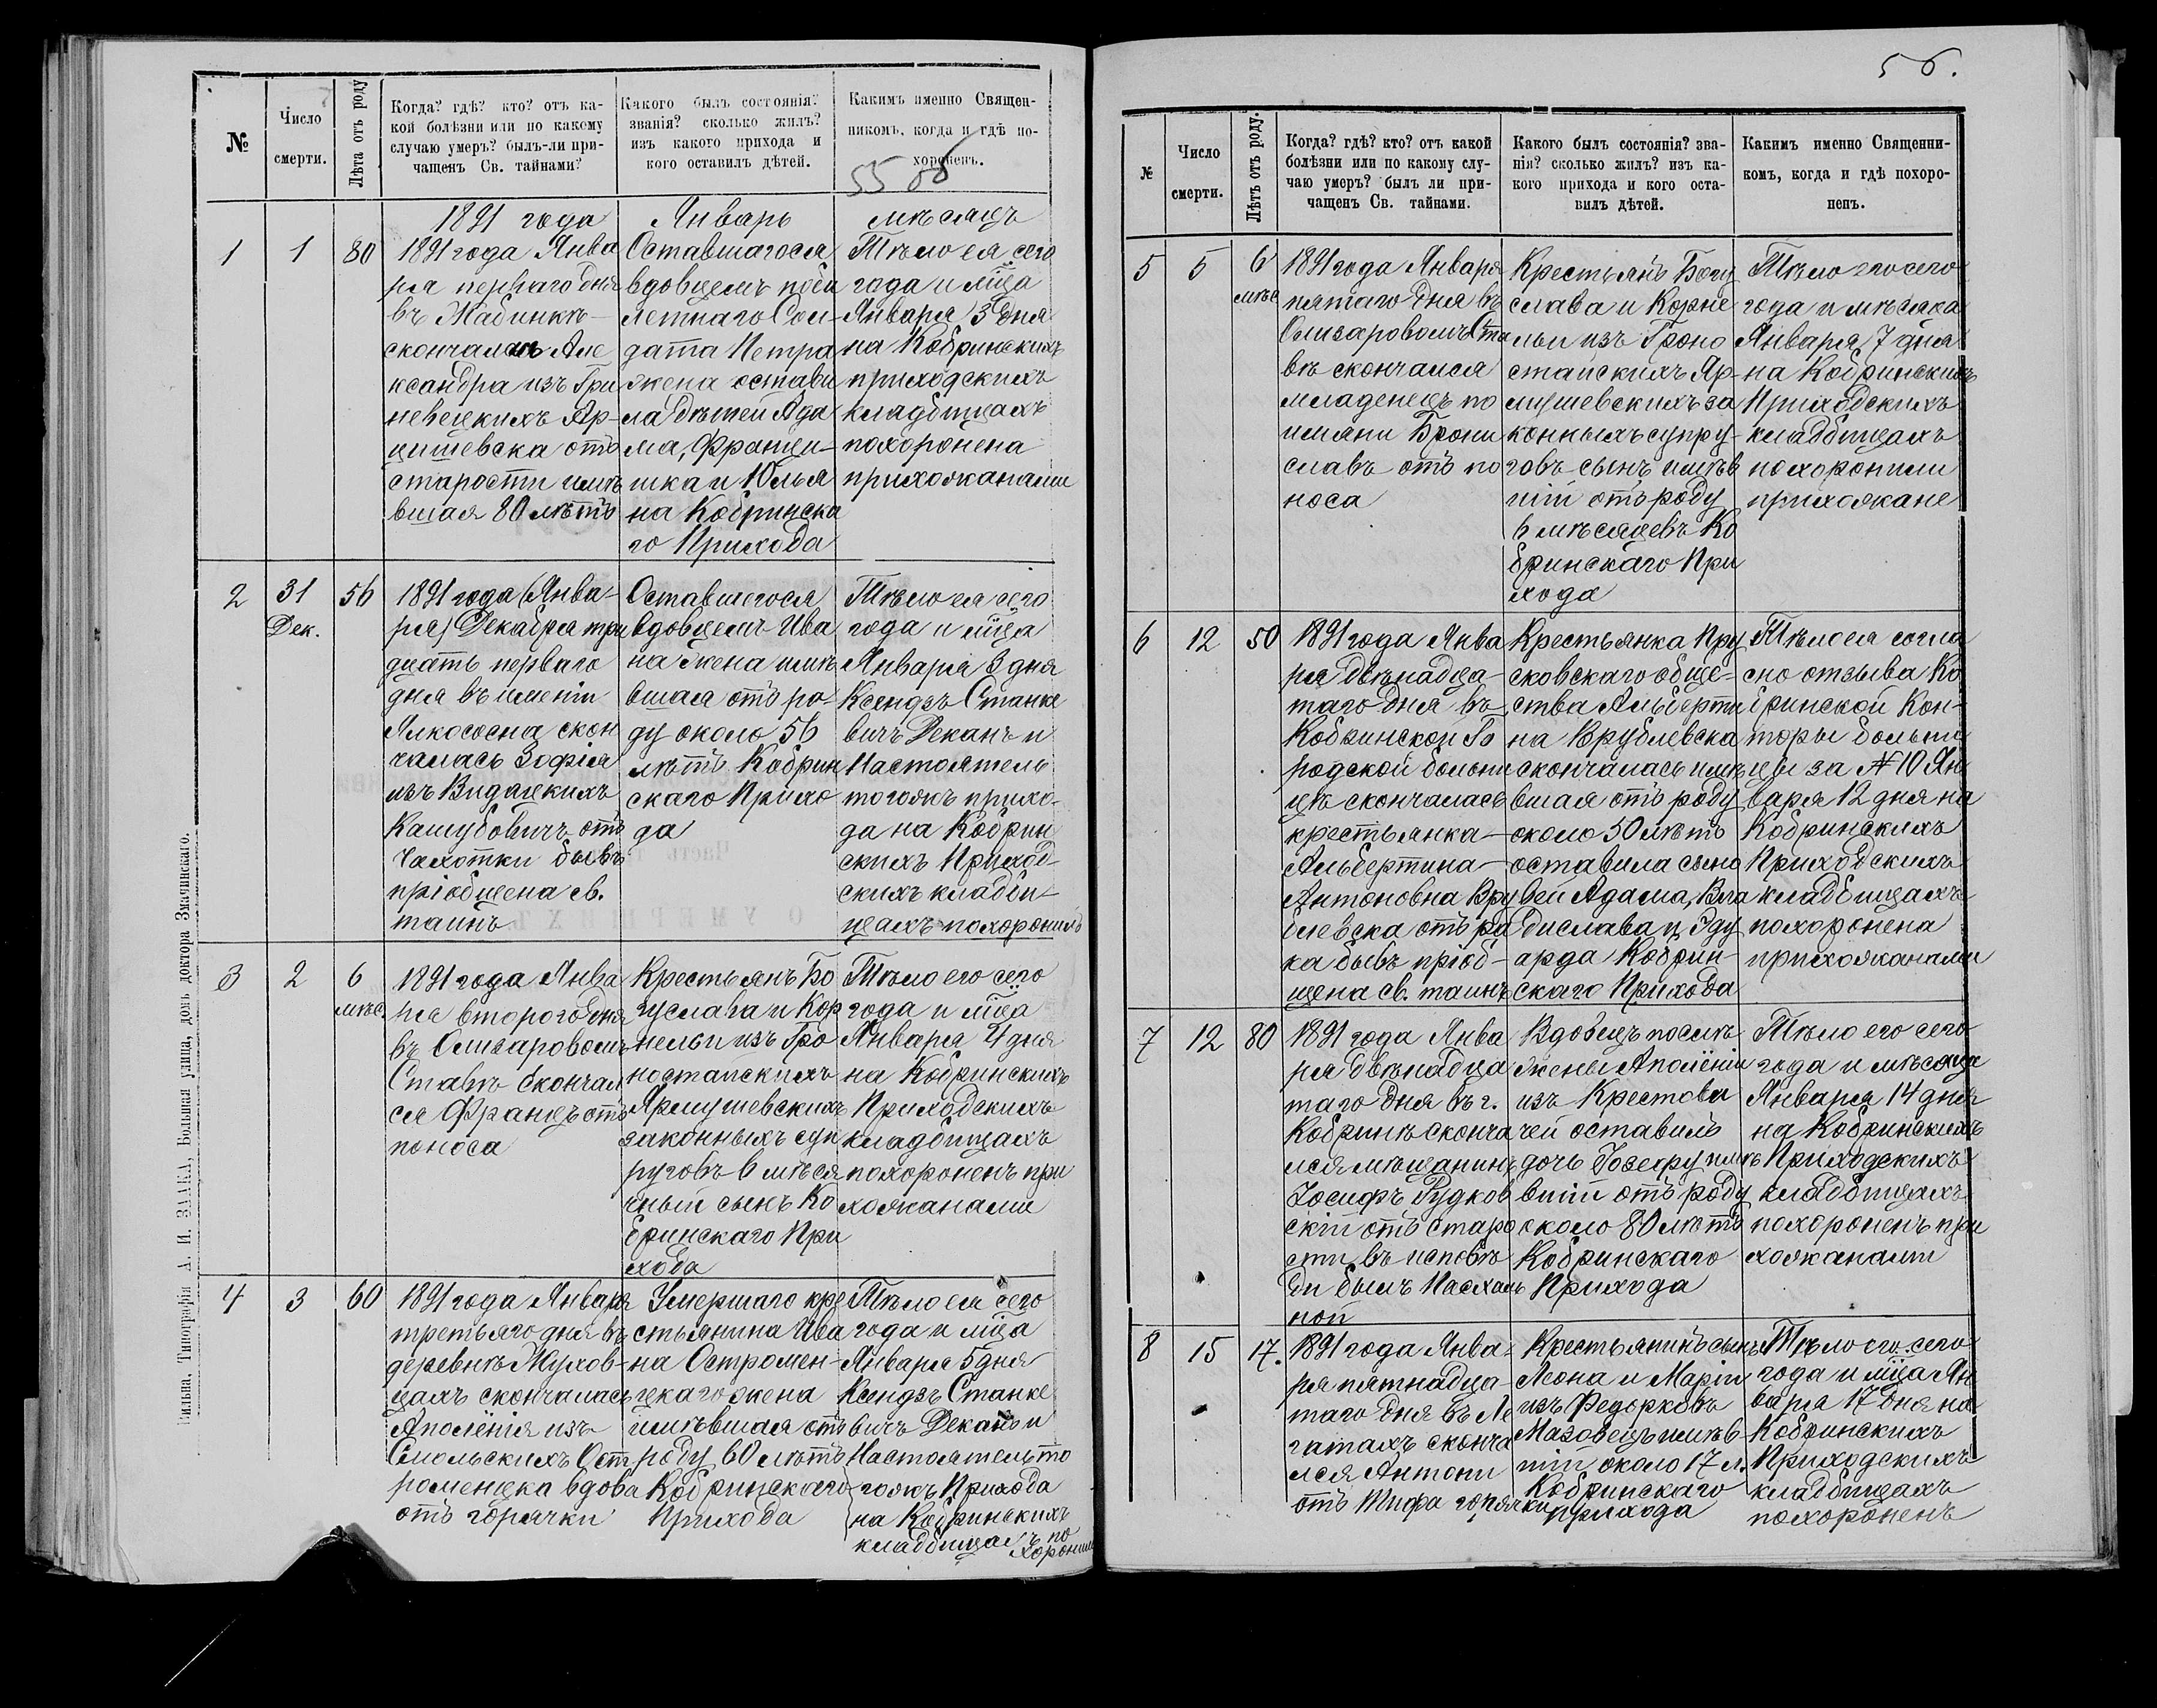 №
Число
смерти.
Лѣта отъ роду
Когда? гдѣ? кто? отъ ка-
кой болѣзни или по какому
случаю умеръ? былъ-ли при-
чащенъ Св. тайнами?
Какого былъ состоянія?
званія? сколько жилъ?
изъ какого прихода и
кого оставилъ дѣтей.
Какимъ именно Священ-
никомъ, когда и гдѣ по-
хороненъ.
55
1891 года Январь мѣсяцъ
1
1
80
1891 года Янва
ря перваго дня
въ Жабинкѣ
скончалась Але
ксандра изъ Гри
невецкихъ Яр-
цишевска отъ
старости имѣ
вшая 80 лѣтъ
Оставшагося
вдовцемъ
летнаго Сол-
дата Петра
жена остави
ла дѣтей Ада
ма, Франци-
шка и Юлья
на Кобринска
го Прихода
Тѣло ея сего
года и мѣца
Января 3 дня
на Кобринскихъ
приходскихъ
кладбищахъ
похоронена
прихожанами
2
31
Дек.
56
1891 года (Янва-
ря) Декабря три
дцать перваго
дня въ имѣніи
скон
чалась Зофія
изъ
отъ
чахотки бывъ
пріобщена св.
таинъ
Оставшегося
вдовцемъ Ива
на жена имѣ
вшая отъ ро-
ду около 56
лѣтъ Кобрин
скаго Прихо
да
Тѣло ея сего
года и мѣца
Января 3 дня
Ксендзъ Станке
вичъ Деканъ и
Настоятель
тогожъ прихо-
да на Кобрин
скихъ Приход-
скихъ кладби-
щахъ похоронилъ
3
2
6
мѣс.
1891 года Янва
ря второго дня
въ Олизаровомъ
Ставѣ скончал
ся Францъ отъ
поноса
Крестьянъ Бо
гуслава и Кор
нельи изъ Гро
ностайскихъ
Ярмушевскихъ
законныхъ суп
руговъ 6 мѣся
чный сынъ Ко
бринскаго При
хода
Тѣло его сего
года и мѣца
Января 4 дня
на Кобринскихъ
Приходскихъ
кладбищахъ
похороненъ при
хожанами
4
3
60
1891 года Января
третьяго дня въ
деревнѣ Жухов-
цахъ скончалась
Аполёнія изъ
Смольскихъ Ост
роменцка вдова
отъ горячки
Умершаго кре
стьянина Ива
на Остромен-
цкаго жена
имѣвшая отъ
роду 60 лѣтъ
Кобринскаго
Прихода
Тѣло ея сего
года и мѣца
Января 5 дня
Ксендзъ Станке
вичъ Деканъ и
Настоятель то
гожъ Прихода
на Кобринскихъ
кладбищахъ по
хоронилъ
Вильна, Типографія А. И. ЗААКА, Большая улица, домъ доктора Змачинскаго.
56.
№
Число
смерти.
Лѣтъ отъ роду.
Когда? гдѣ? кто? отъ какой
болѣзни или по какому слу-
чаю умеръ? былъ ли при-
чащенъ Св. тайнами.
Какого былъ состоянія? зва-
нія? сколько жилъ? изъ ка-
кого прихода и кого оста-
вилъ дѣтей.
Какимъ именно Священни-
комъ, когда и гдѣ похоро-
ненъ.
5
5
6
мѣс
1891 года Января
пятаго дня въ
Олизаровомъ Ста
вѣ скончался
младенецъ по
имяни Брони
славъ отъ по
носа
Крестьянъ Богу
слава и Корне
льи изъ Гроно
стайскихъ Яр-
мушевскихъ за
конныхъ супру-
говъ сынъ имѣв
шій отъ роду
6 мѣсяцевъ Ко
бринскаго При
хода
Тѣло его сего
года и мѣсяца
Января 7 дня
на Кобринскихъ
Приходскихъ
кладбищахъ
похоронили
прихожане
6
12
50
1891 года Янва
ря двѣнадца-
таго дня въ
Кобринской Го
родской больни
цѣ скончалась
крестьянка
Альбертина
Антоновна Вру
блевска отъ ра
ка бывъ пріоб-
щена св. таинъ
Крестьянка Пру
сковскаго обще-
ства Альберти
на Врублевска
скончалась имѣ
вшая отъ роду
около 50 лѣтъ
оставила сыно
вей Адама, Вла
дислава и Эду
арда Кобрин-
скаго Прихода
Тѣло ея согла
сно отзыва Ко
бринской Кон-
торы больни
цы за № 10 Ян
варя 12 дня на
Кобринскихъ
Приходскихъ
кладбищахъ
похоронена
прихожанами
7
12
80
1891 года Янва
ря двѣнадца
таго дня въ г.
Кобринѣ сконча
лся мѣщанинъ
Іосифъ Рудков
скій отъ старо
сти въ исповѣ
ди былъ Пасхаль
ной
Вдовецъ послѣ
жены Аполёніи
изъ Крестови
чей оставилъ
дочь Іозефу имѣ
вшій отъ роду
около 80 лѣтъ
Кобринскаго
Прихода
Тѣло его сего
года и мѣсяца
Января 14 дня
на Кобринскихъ
Приходскихъ
кладбищахъ
похороненъ при
хожанами
8
15
17.
1891 года Янва-
ря пятнадца-
таго дня въ Ле
гатахъ сконча
лся Антони
отъ тифа горячки
Крестьянинъ сынъ
Леона и Маріи
изъ Федорковъ
Мазовецъ имѣв-
шій около 17 л.
Кобринскаго
прихода
Тѣло его сего
года и мѣца Ян
варя 17 дня на
Кобринскихъ
Приходскихъ
кладбищахъ
похороненъ